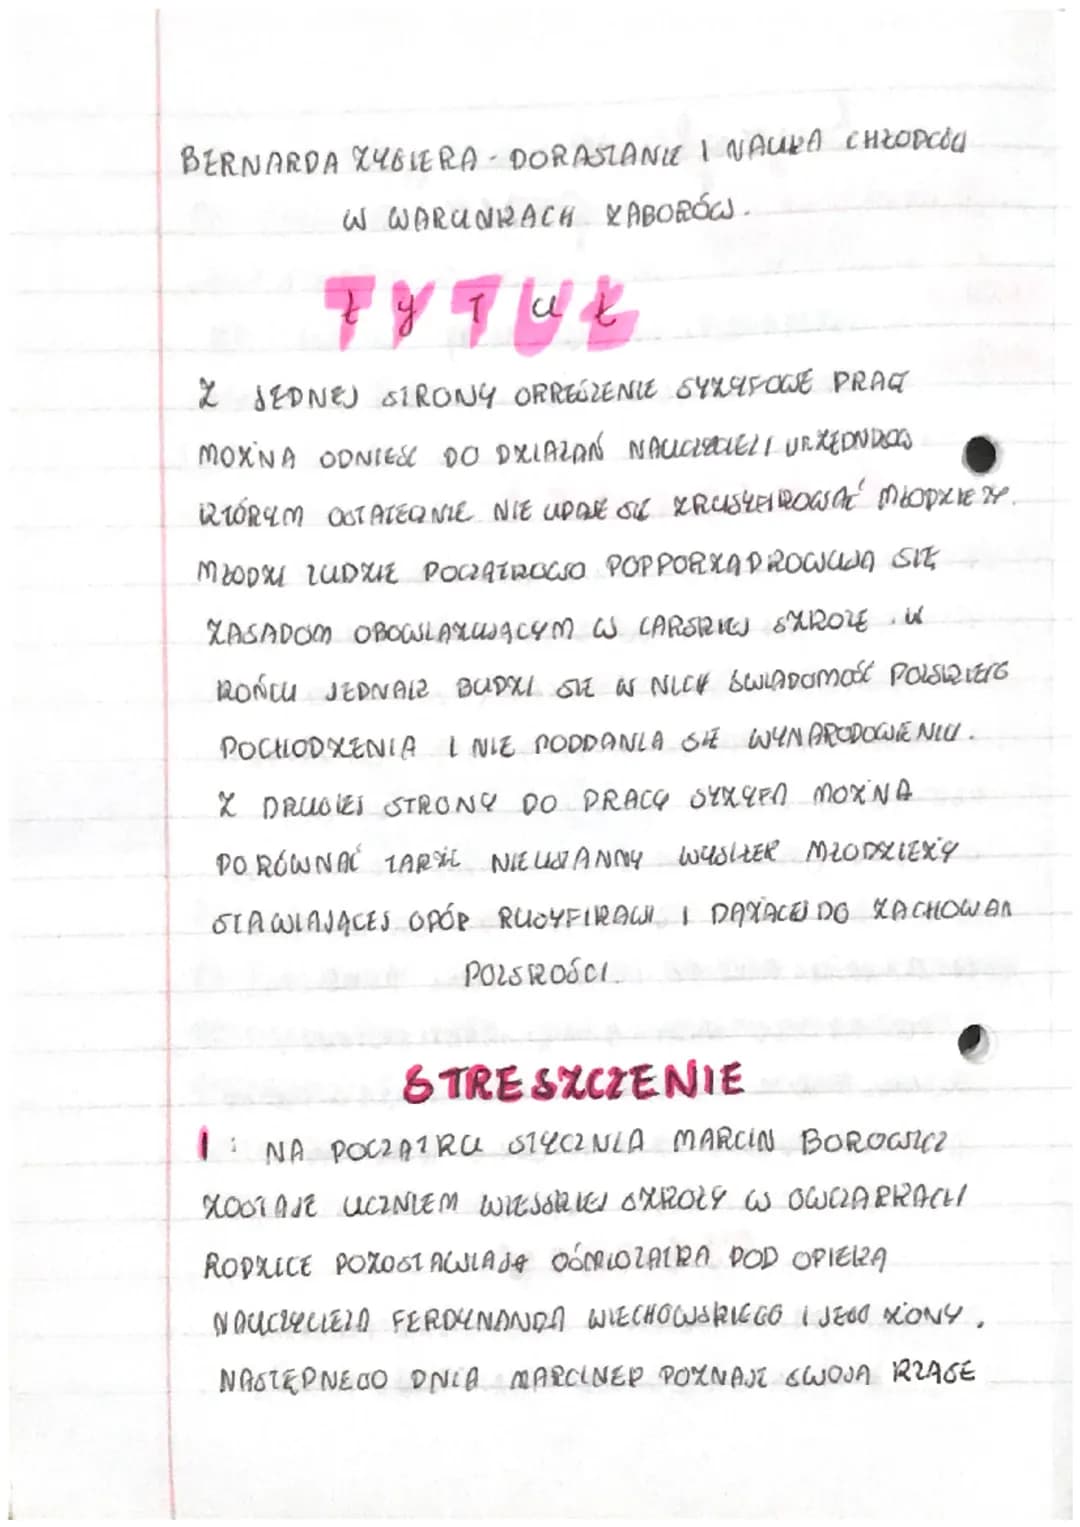 BERNARDA ZYGIERA - DORASTANIE I NAUKA CHŁOPCÓW
W WARUNKACH ZABORÓW.
TYTUŁ
Z JEDNEJ STRONY OKREŚLENIE SYZYFOWE PRACE
MOŻNA ODNIEŚĆ DO DZIAŁAŃ NAUCZYCIELI I URZĘDNIKÓW
KTÓRYM OSTATECZNIE NIE UDAJE SIĘ ZRUSYFIKOWAĆ MŁODZIEŻY.
MŁODZI LUDZIE POCZĄTKOWO POPPORZĄDKOWUJĄ SIĘ
ZASADOM OBOWIĄZUJĄCYM W CARSKIEJ SZKOLE. W
KOŃCU JEDNAK BUDZI SIĘ W NICH ŚWIADOMOŚĆ POLSKIEGO
POCHODZENIA I NIE PODDANIA SIĘ WYNARODOWIENIU.
Z DRUGIEJ STRONY DO PRACY SYZYFA MOŻNA
PORÓWNAĆ TAKŻE NIEUSTANNY WYSIŁEK MŁODZIEŻY
STAWIAJĄCEJ OPÓR RUSYFIKACJI I DĄŻĄCEJ DO ZACHOWAN
POLSKOŚCI.
STRESZCZENIE
1: NA POCZĄTKU STYCZNIA MARCIN BOROWICZ
ZOSTAJE UCZNIEM WIEJSKIEJ SZKOŁY W OWCZARKACH
RODZICE POZOSTAWIAJĄ OŚMIOLATKA POD OPIEKĄ
NAUCZYCIELA FERDYNANDA WIECHOWSKIEGO I JEGO ŻONY.
NASTĘPNEGO DNIA MARCINEK POZNAJE SWOJĄ KLASĘ